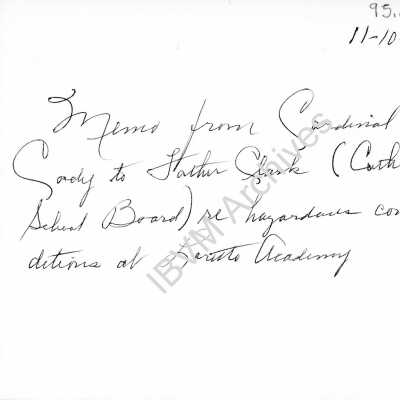 95.
11-10
Memo from Cardinal
to Father Clark (Cath
School Board) re hazardous con
ditions at Loretto Academy
IBVM Archives